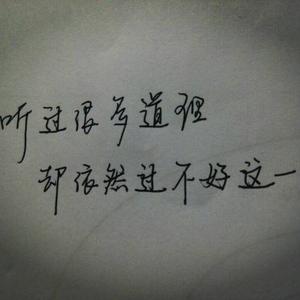 听过很多道理
却依然过不好这一